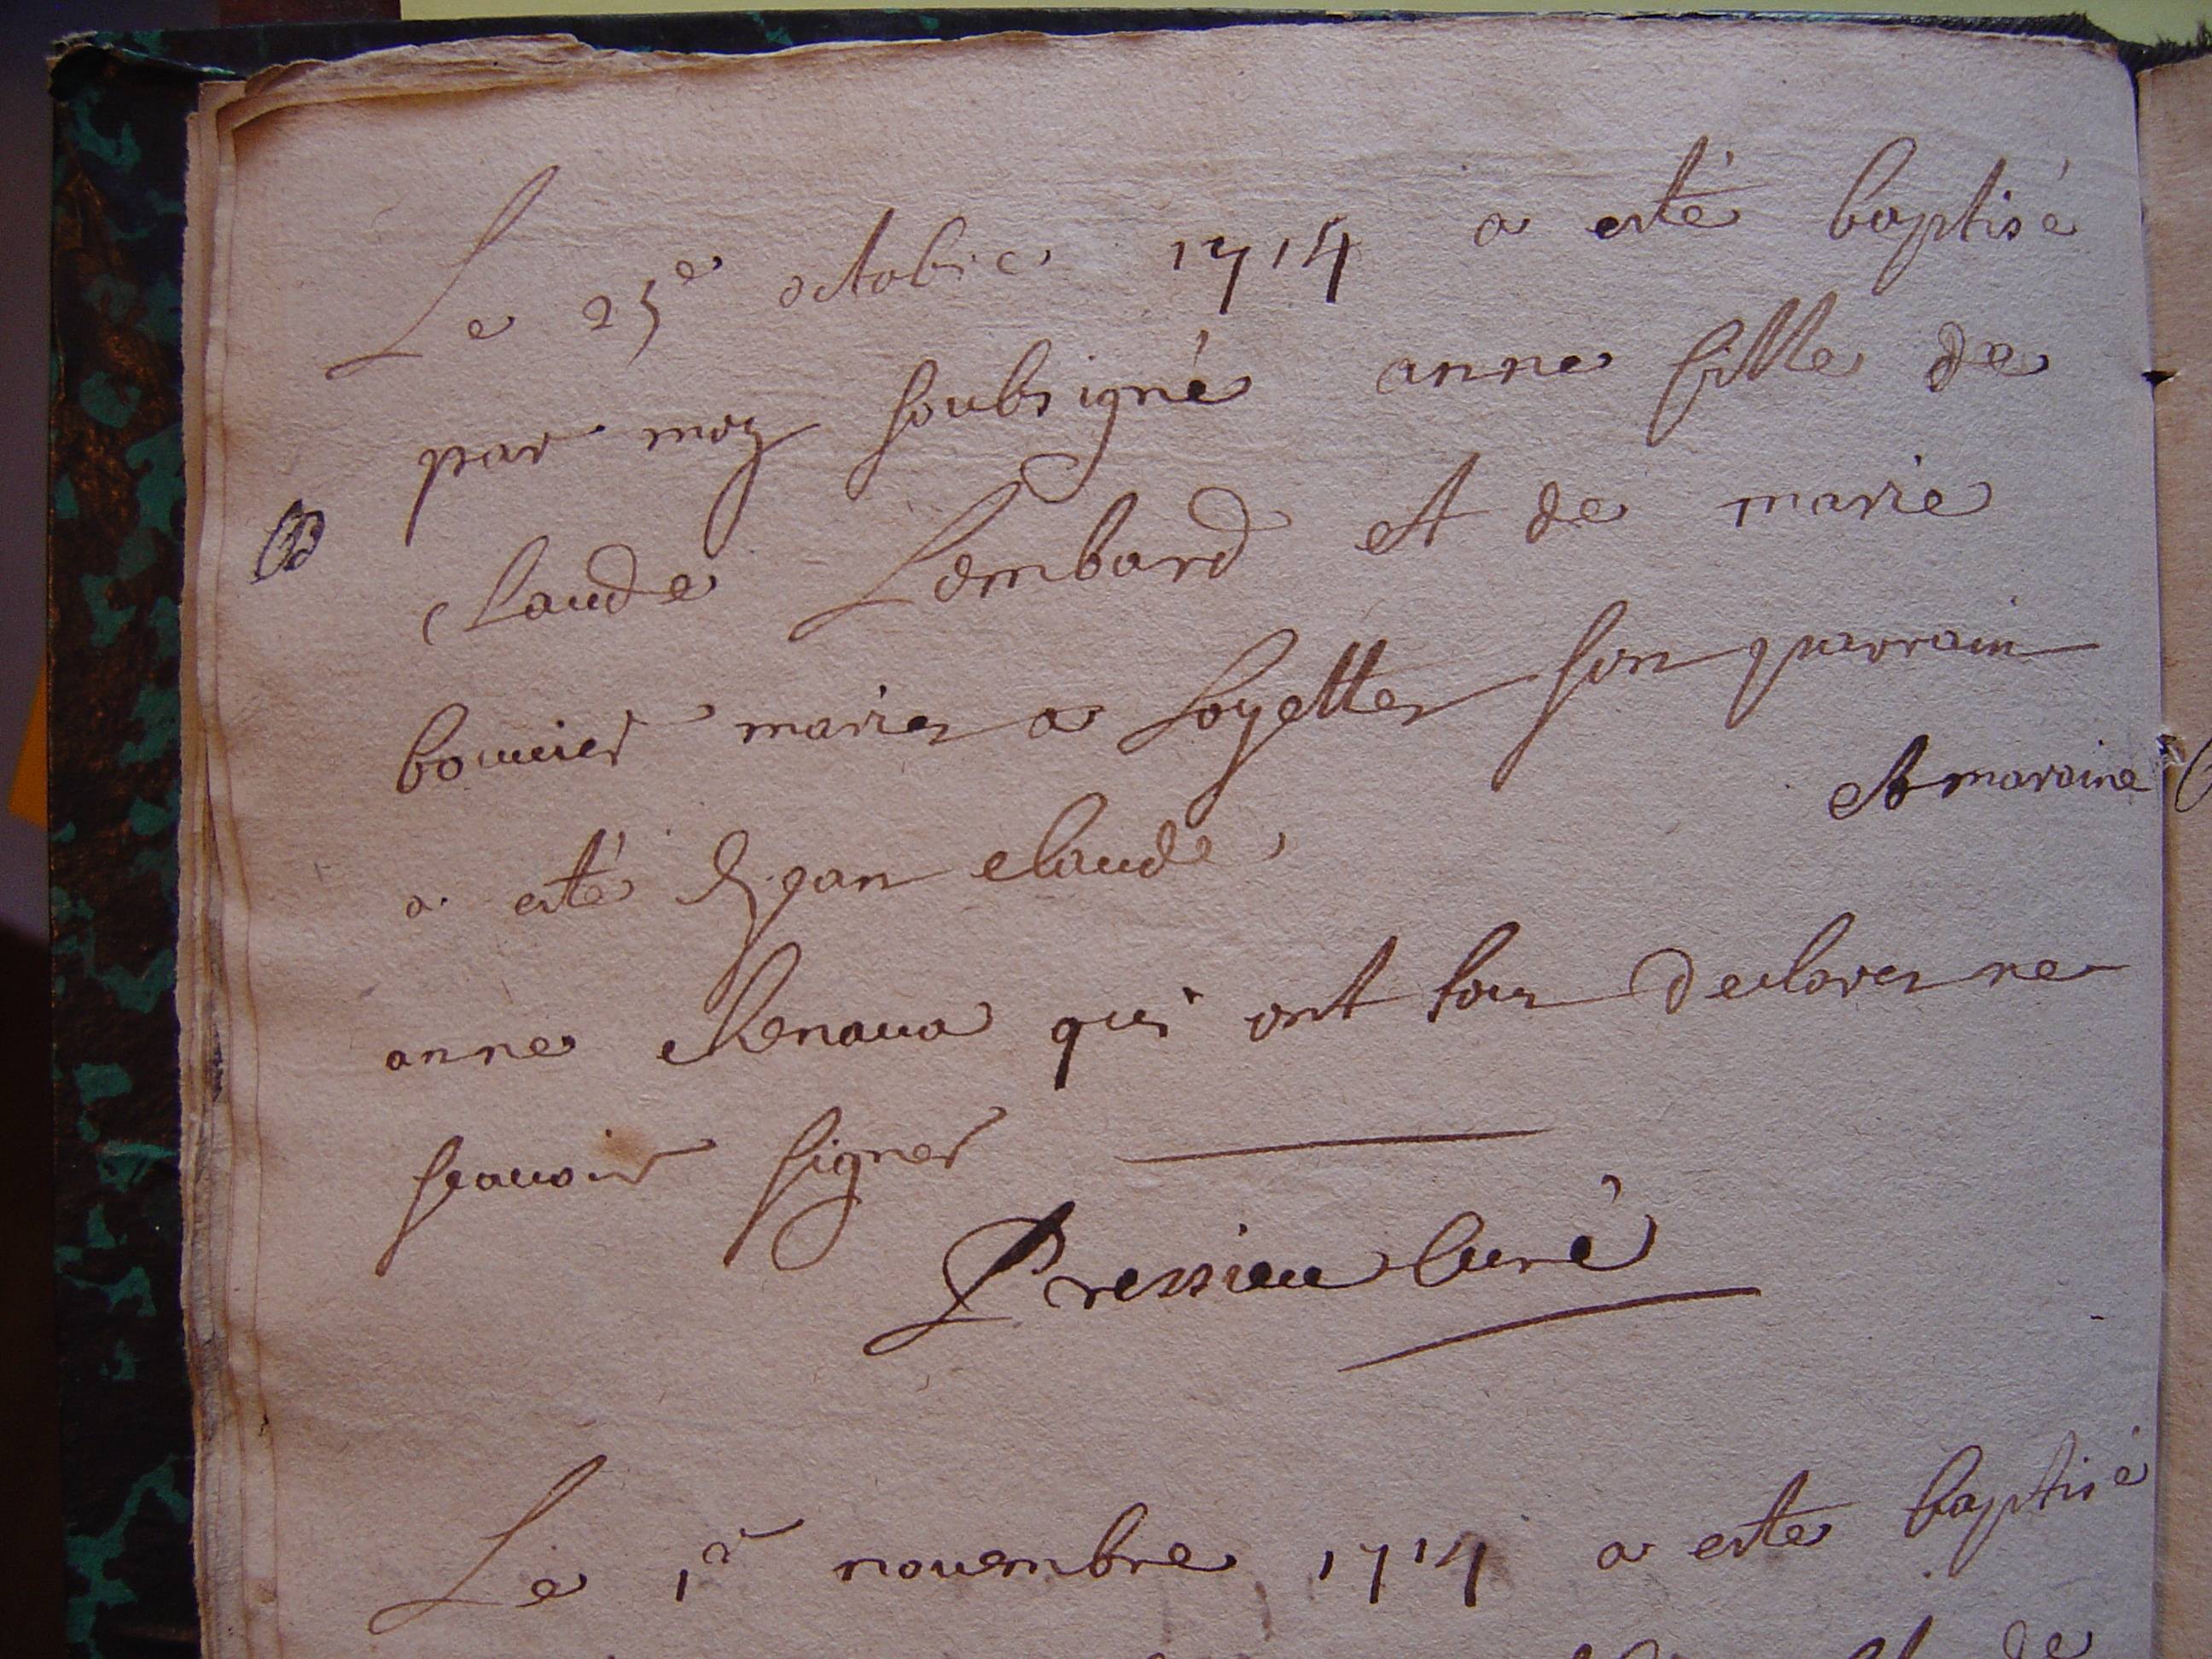 Le 25e octobre 1714 a esté baptisé
par moy soubsigné anne fille de
B
claude Lombard et de marie
bouuier maries a Loyettes son parrain
a esté Jean claude, et maraine
anne chenaua qui ont tous declares ne
scauoir signer
Pressieu Curé
Le 1er nouembre 1714 a este baptisé
de